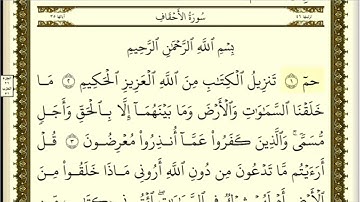 سُورَةُ الأَحْقَافِ
بِسْمِ اللَّهِ الرَّحْمَٰنِ الرَّحِيمِ
حمٓ ۝١ تَنزِيلُ الْكِتَابِ مِنَ اللَّهِ الْعَزِيزِ الْحَكِيمِ ۝٢ مَا
خَلَقْنَا السَّمَاوَاتِ وَالْأَرْضَ وَمَا بَيْنَهُمَا إِلَّا بِالْحَقِّ وَأَجَلٍ
مُّسَمًّى ۚ وَالَّذِينَ كَفَرُوا عَمَّا أُنذِرُوا مُعْرِضُونَ ۝٣ قُلْ
أَرَءَيْتُم مَّا تَدْعُونَ مِن دُونِ اللَّهِ أَرُونِي مَاذَا خَلَقُوا مِنَ